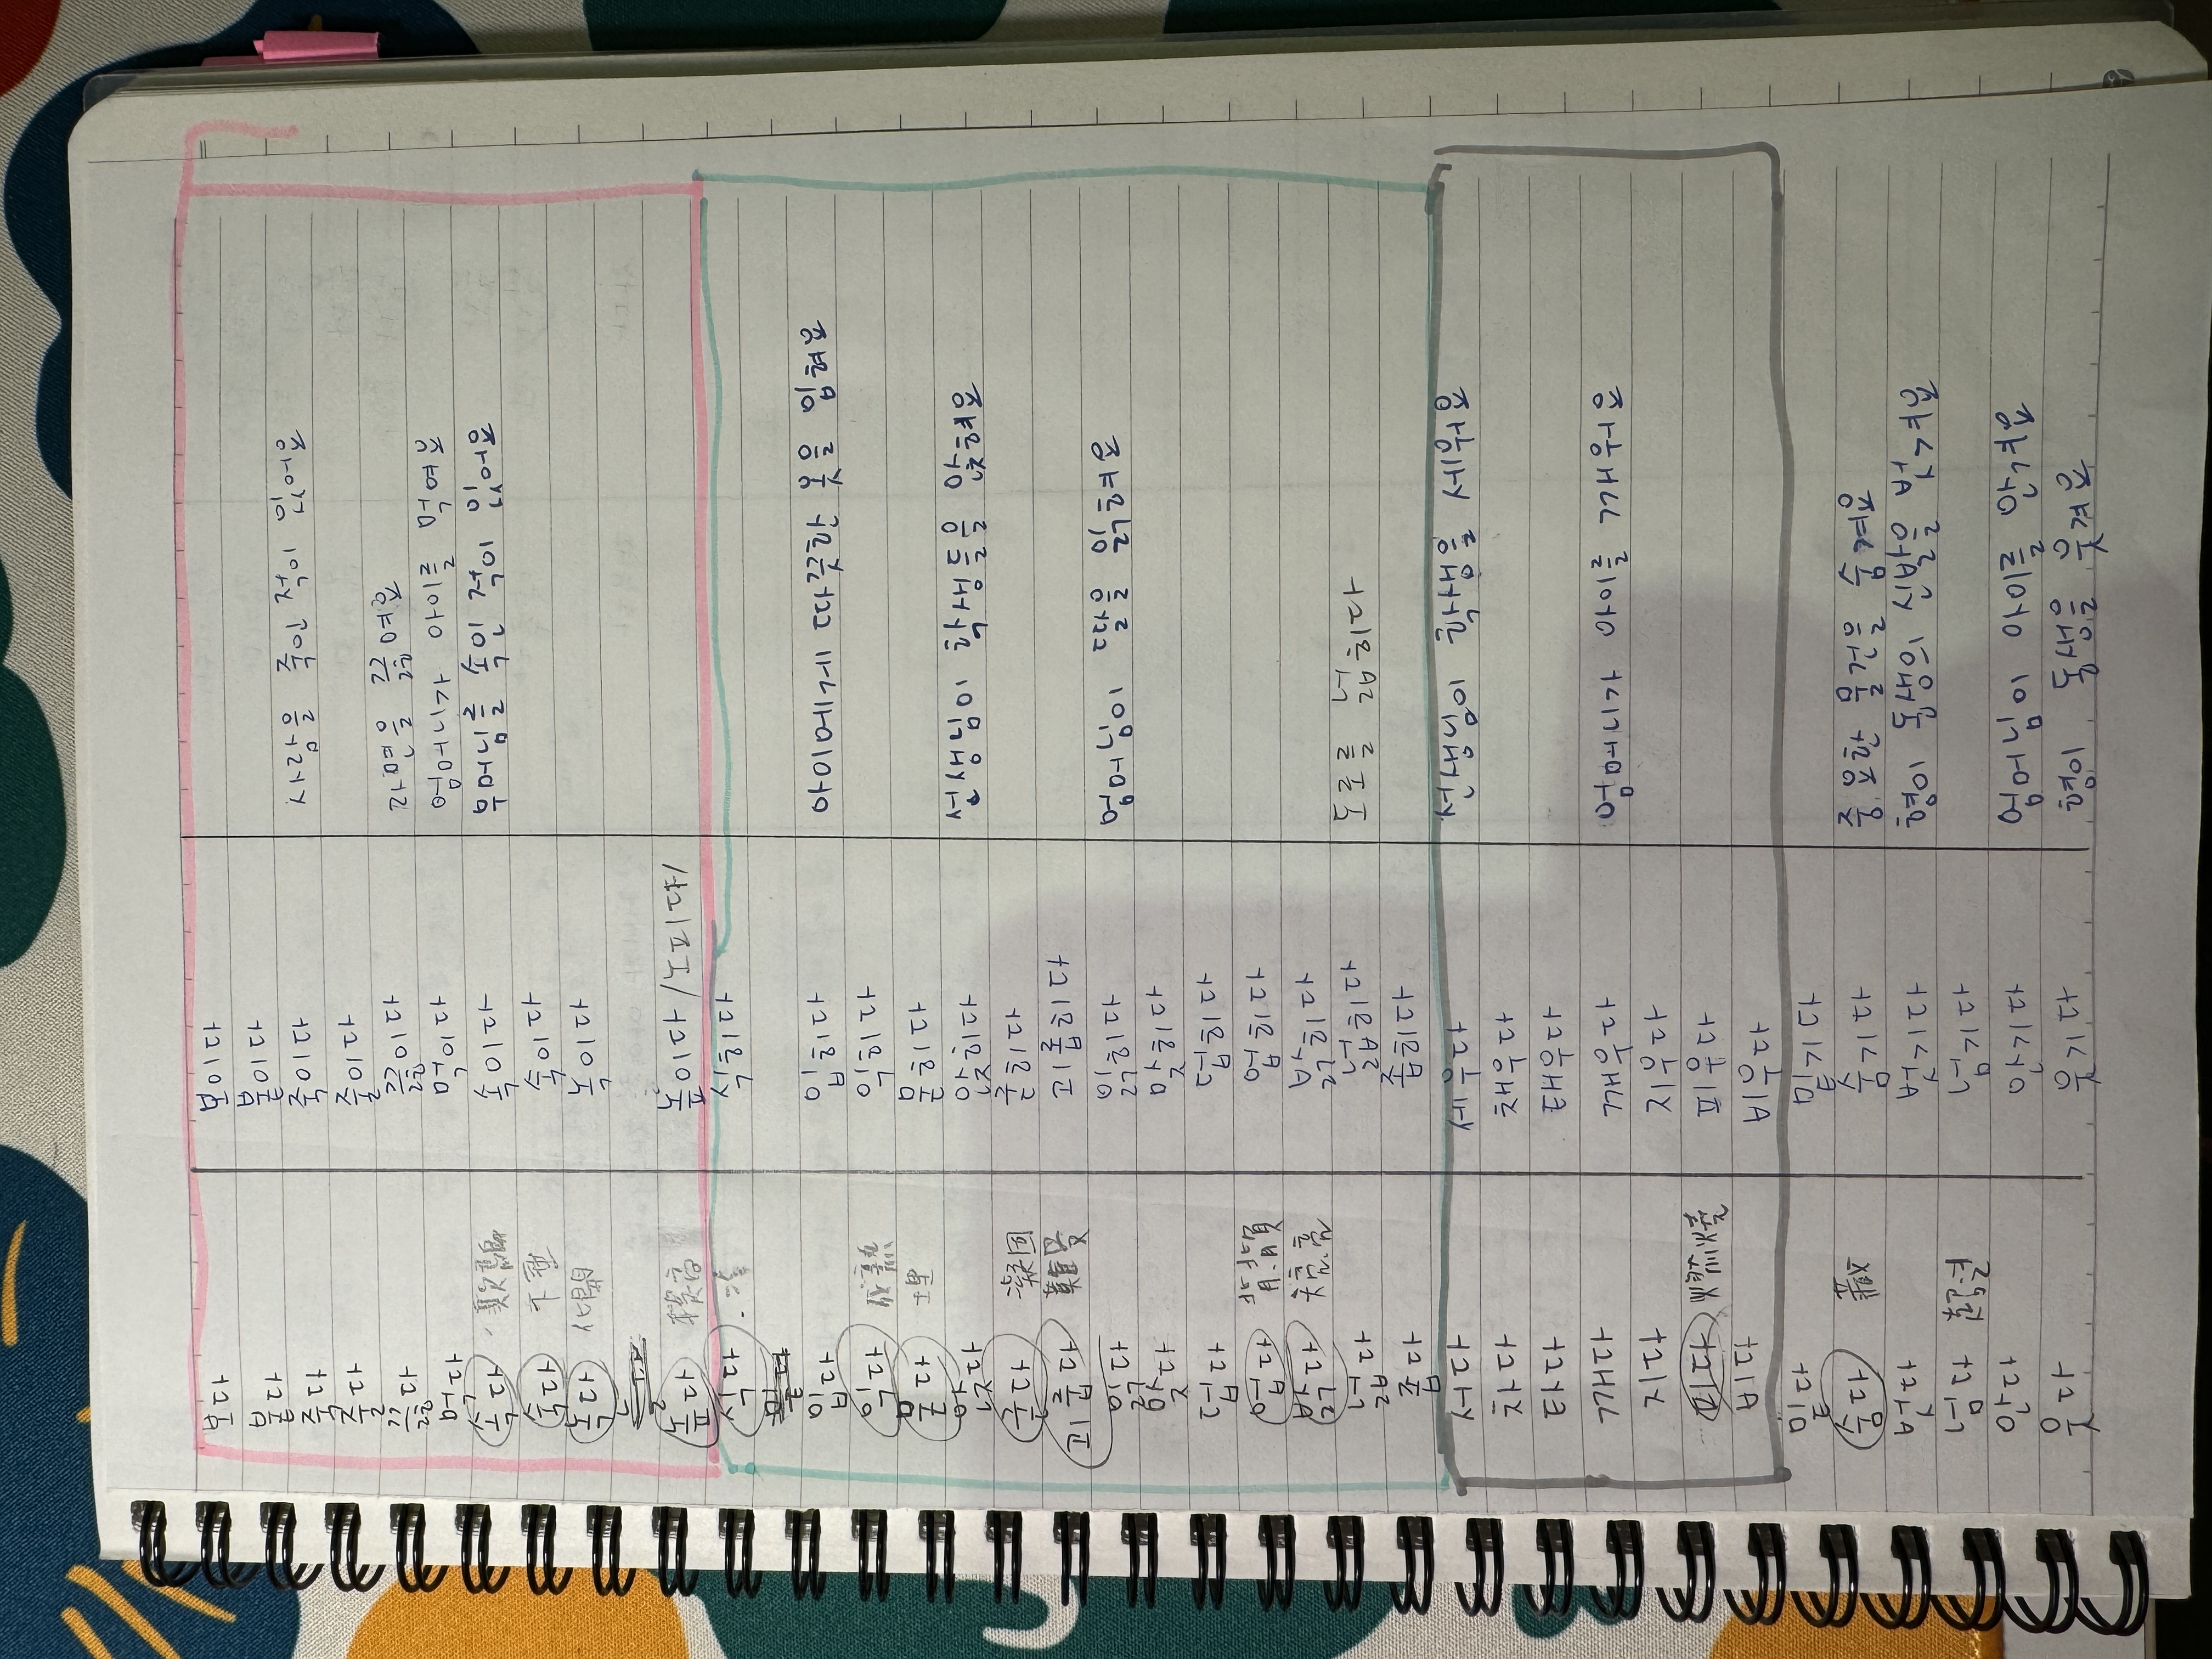 보다 보이다
붙다 붙이다
죽다 죽이다 사람을 죽인 적이 있어요
줄다 줄이다
끓다 끓이다 라면을 끓여요
먹다 먹이다 엄머니가 아이를 먹여요
속다 欺騙 속이다 부머님를 속인 적이 있어요
숙다 下垂 숙이다
녹다 化開 녹이다
높다 提高 높이다 /노피다/
식다 식히다
입다 입히다 아이에게 따뜻한 옷을 입혀요
익다 煮熟 익히다
묻다 埋 묻히다
앉다 앉히다 선생님이 학생들을 앉혀요
굳다 凝固 굳히다
괴롭다 難受 괴롭히다
읽다 읽히다 엄머님이 딸을 읽혀요
맞다 맞히다
덥다 덥히다
업다 背.背負 업히다
밝다 밝히다
넓다 넓히다 도로를 넓히다
좁다 좁히다
서다 세우다 선생님이 학생을 세워요
차다 채우다
타다 태우다
깨다 깨우다 엄머니가 아이를 깨워요
지다 지우다
피다 燃燒 피우다
비다 비우다
밑다 밑기다
숨다 藏 숨기다 중요한 물건을 숨겨요
벗다 벗기다 형이 동생의 신발을 벗겨요
넘다 넘기다
안다 안기다 엄머님이 아이를 안겨요
웃다 웃기다 형이 동생을 웃겨요